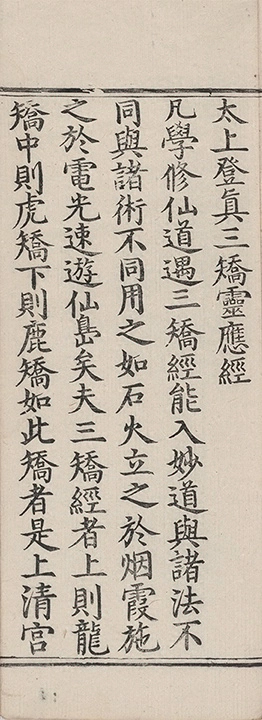 太上登真三矯靈應經
凡學修仙道遇三矯經能入妙道與諸法不
同與諸術不同用之如石火立之於烟霞施
之於電光速遊仙島矣夫三矯經者上則龍
矯中則虎矯下則鹿矯如此矯者是上清宮